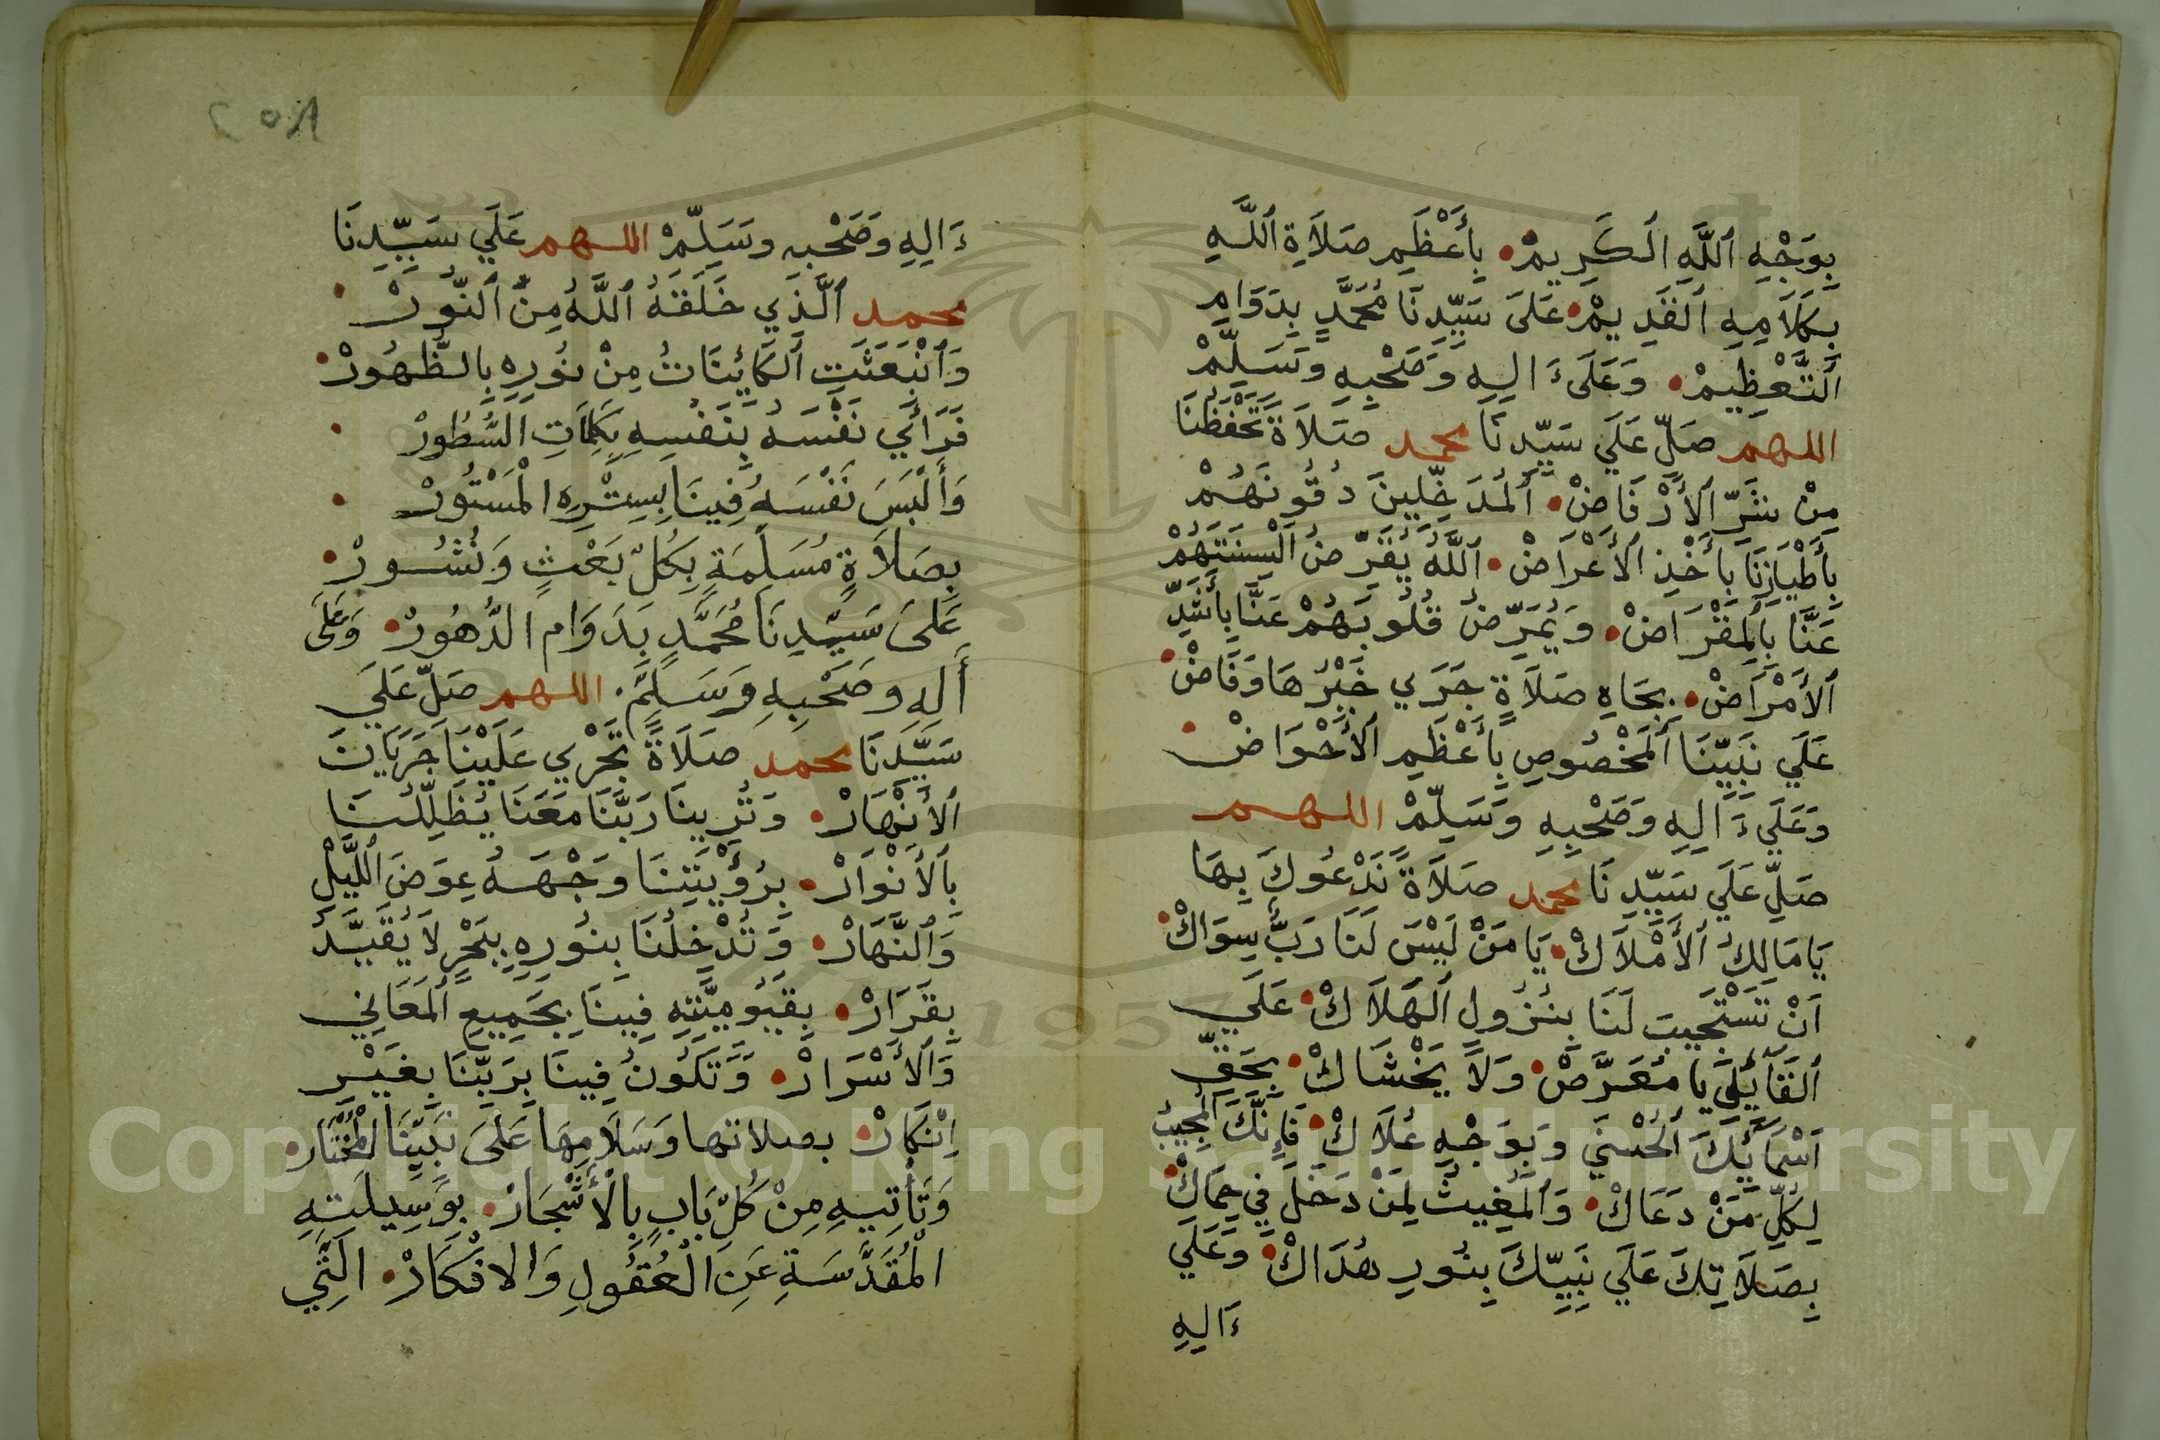 بِوَجْهِ ٱللَّهِ الكَرِيمْ • بِأَعْظَمِ صَلاَةِ ٱللَّهِ
بِكَلاَمِهِ ٱلقَدِيمْ • عَلَىَ سَيِّدِنَا مُحَمَّدٍ بِدَوَامِ
ٱلتَّعْظِيمْ • وَعَلَىَ ءَالِهِ وَصَحْبِهِ وَسَلِّمْ
اللهم صَلِّ عَلَي سَيِّدِنَا محمد صَلاَةً تَحْفَظُنَا
مِنْ شَرِّ ٱلأَرْفَاضْ • ٱلمُدَخِّلِينَ دُقُونَهُمْ
بِأَطْيَازِنَا بِأَخْذِ ٱلأَعْرَاضْ • ٱللَّهُ يُقَرِّضُ ٱلْسِنَتَهُمْ
عَنَّا بِٱلمِقْرَاضْ • وَيُمَرِّضُ قُلُوبَهُمْ عَنَّا بِأَشَدِّ
ٱلأَمْرَاضْ • بِجَاهِ صَلاَةٍ جَرَي خَيْرُهَا وَفَاضْ •
عَلَي نَبِيِّنَا ٱلمَخْصُوصِ بِأَعْظَمِ ٱلأَحْوَاضْ •
وَعَلَي ءَالِهِ وَصَحْبِهِ وَسَلِّمْ اللهم
صَلِّ عَلَي سَيِّدِنَا محمد صَلاَةً نَدْعُوكَ بِهَا
يَا مَالِكَ ٱلأَمْلاَكْ • يَا مَنْ لَيْسَ لَنَا رَبٌّ سِوَاكْ •
اَنْ تَسْتَجِيبَ لَنَا بِنُزُولِ ٱلهَلاَكْ • عَلَي
يَا مُعَرَّصْ • وَلاَ يَخْشَاكْ • بِحَقِّ
اَسْمَآئِكَ ٱلحُسْنَي وَبِوَجْهِ عُلاَكْ • فَإِنَّكَ ٱلمُجِيبُ
لِكُلِّ مَنْ دَعَاكْ • وَٱلمُغِيثُ لِمَنْ دَخَلَ فِي حِمَاكْ •
بِصَلاَتِكَ عَلَي نَبِيِّكَ بِنُورِ هُدَاكْ • وَعَلَي
ءَالِهِ
٢٥٨
ءَالِهِ وَصَحْبِهِ وَسَلِّمْ اللهم عَلَي سَيِّدِنَا
محمد ٱلَّذِي خَلَقَهُ ٱللَّهُ مِنْ ٱلنُّورْ •
وَٱنْبَعَثَتِ ٱلكَائِنَاتُ مِنْ نُورِهِ بِالظُّهُورْ •
فَرَأَي نَفْسَهُ بِنَفْسِهِ بِكَلِمَاتِ السُّطُورْ •
وَأَلْبَسَ نَفْسَهُ فِينَا بِسِتْرِهِ الْمَسْتُورْ •
بِصَلاَةٍ مُسَلِّمَةٍ بِكُلِّ بَعْثٍ وَنُشُورْ •
عَلىَ سَيِّدِنَا مُحَمَّدٍ بِدَوَامِ الدُّهُورْ • وَعَلَى
أَلِهِ وَصَحْبِهِ وَسَلِّمْ . اللهم صَلِّ عَلَي
سَيِّدِنَا محمد صَلاَةً تَجْرِي عَلَيْنَا جَرَيَانَ
ٱلأَنْهَارْ • وَتُرِينَا رَبَّنَا مَعَنَا يُظَلِّلُنَا
بِٱلأَنْوَارْ • بِرُؤْيَتِنَا وَجْهَهُ عِوَضَ ٱللَّيْلِ
وَٱلنَّهَارْ • وَتُدْخِلُنَا بِنُورِهِ بِبَحْرٍ لاَ يُقَيَّدُ
بِقَرَارْ • بِقَيُّومِيَّتِهِ فِينَا بِجَمِيعِ ٱلمَعَانِي
وَٱلأَسْرَارْ • وَتَكُونُ فِينَا بِرَبِّنَا بِغَيْرِ
اِنْكَارْ • بصلاتها وَسَلاَمِهَا عَلَىَ نَبِيِّنَا الْمُخْتَارْ •
وَتَأْتِيهِ مِنْ كُلِّ بَابٍ بِالْأَشْجَارْ • بِوَسِيلَتِهِ
الْمُقَدَّسَةِ عَنِ الْعُقُولِ وَالافْكَارْ • الَّتِي
Copyright © King Saud University
1957